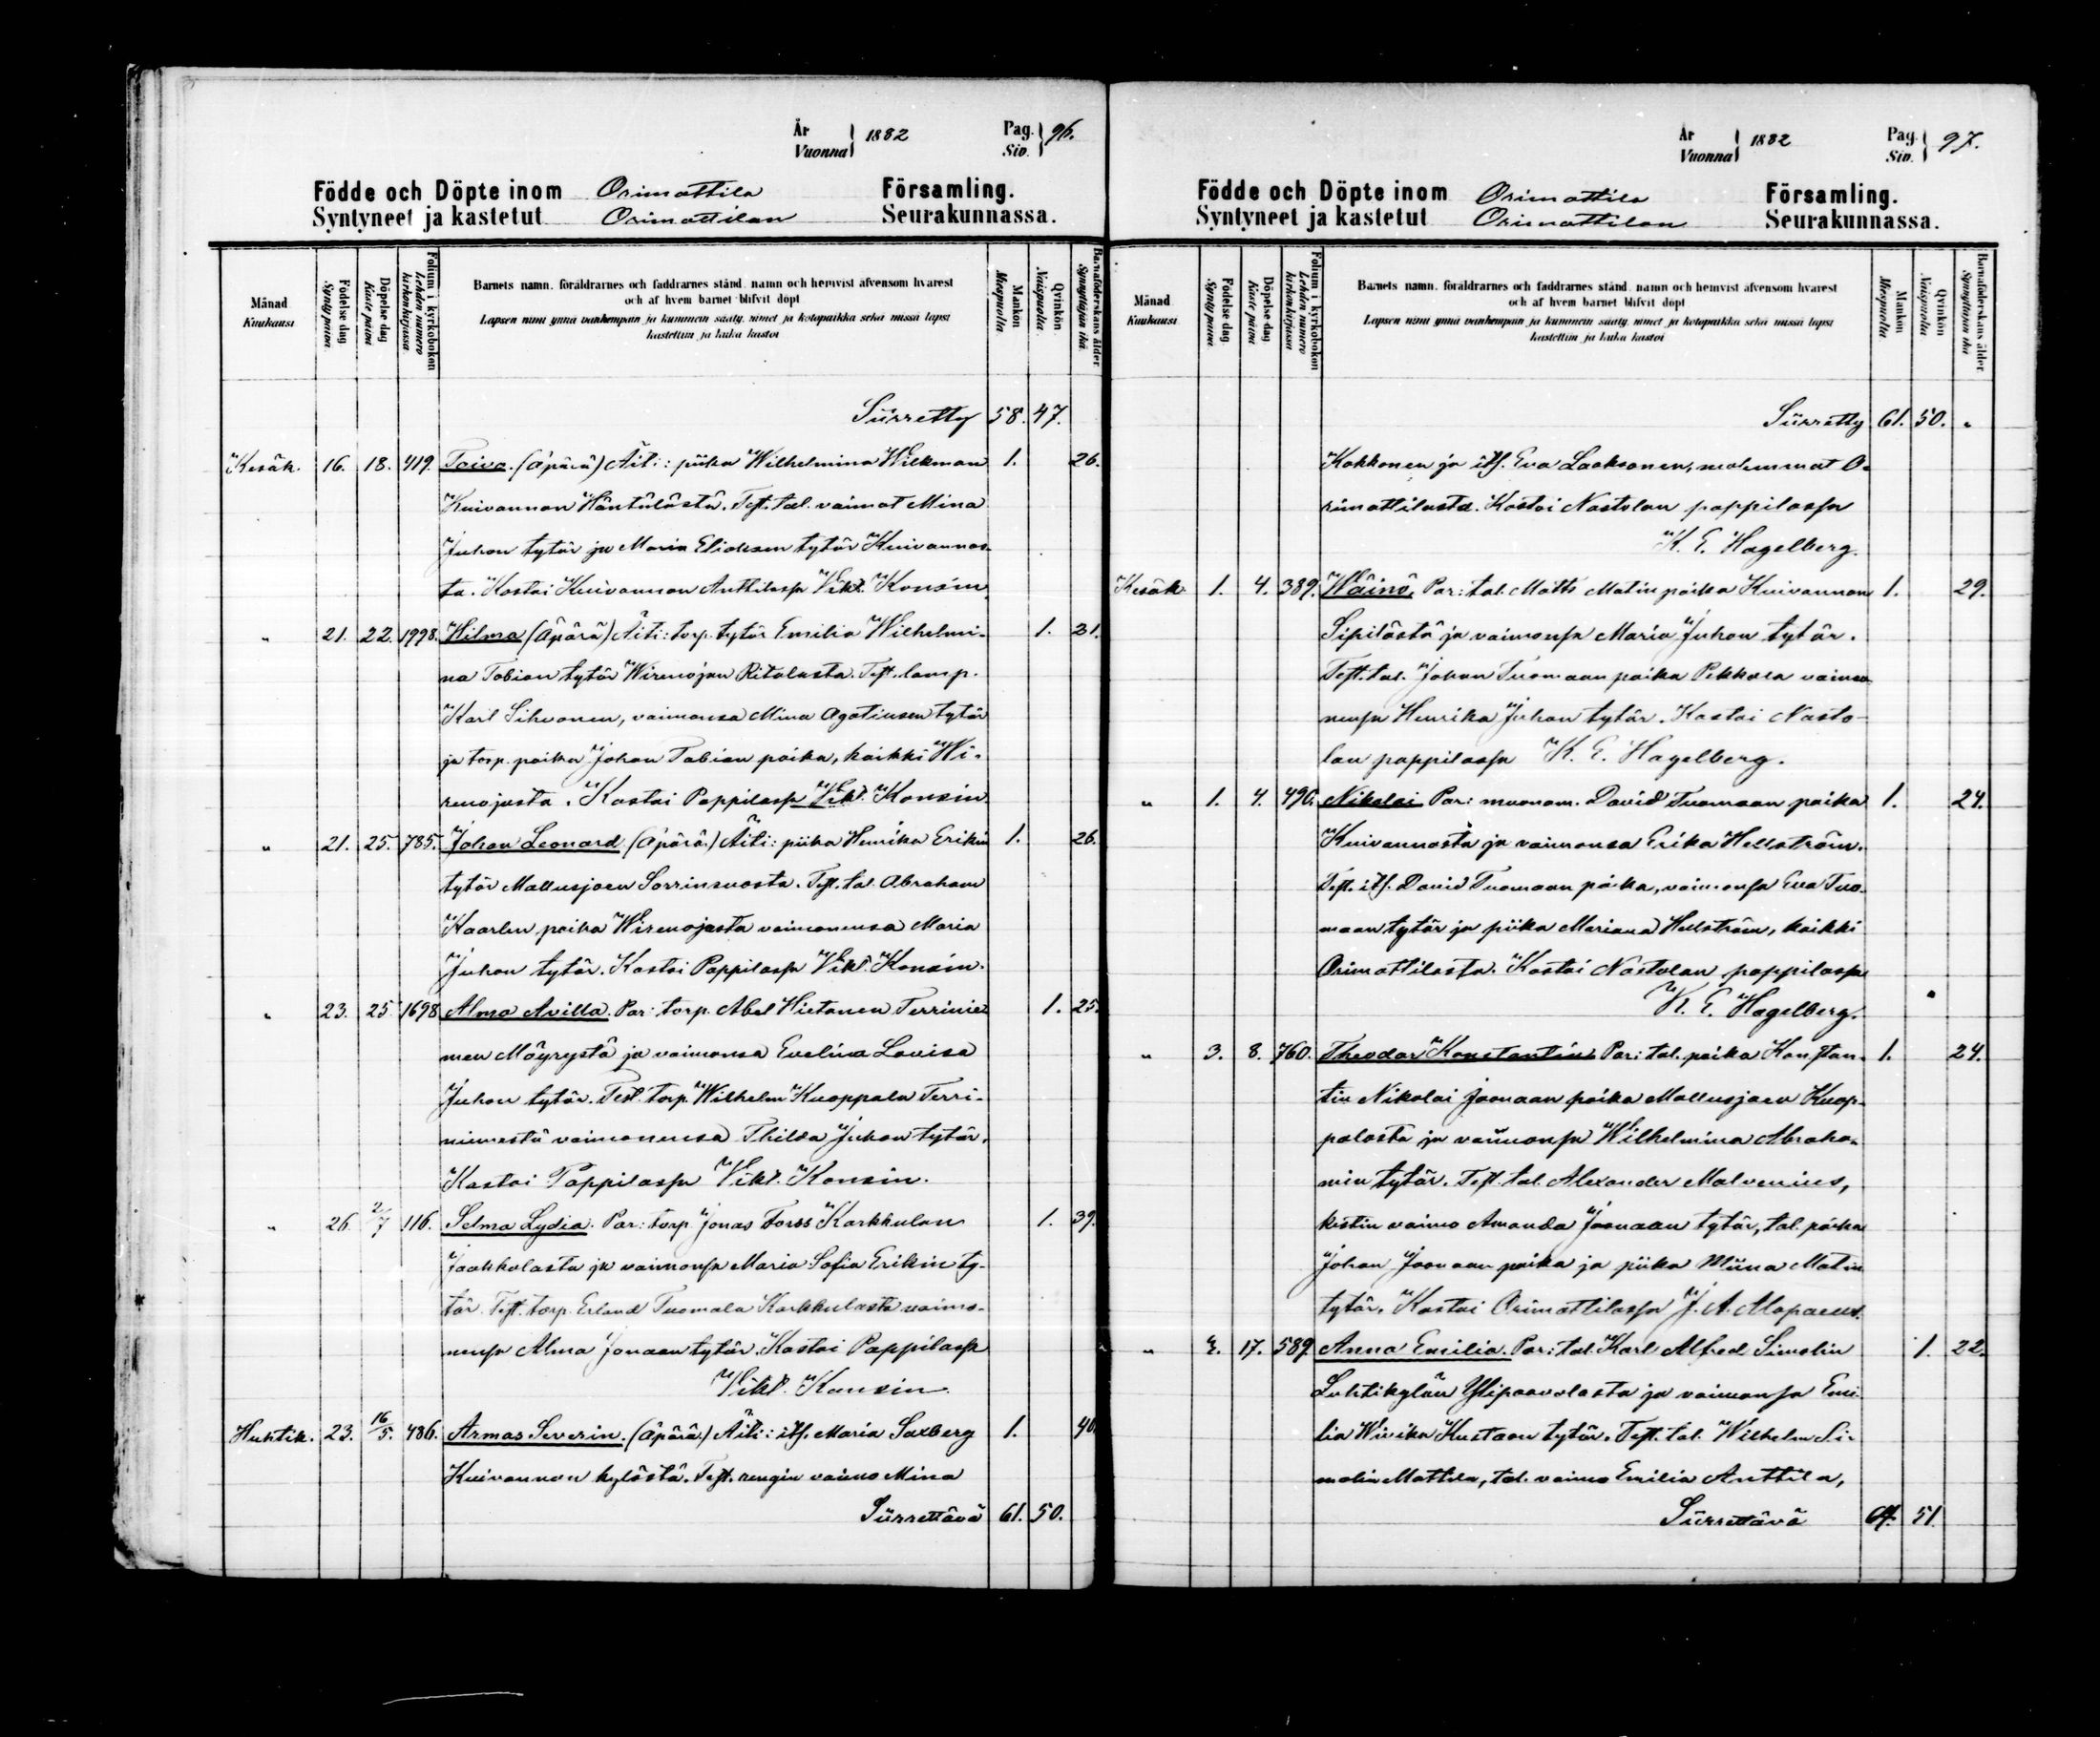 År
Vuonna } 1882
Pag.
Siv. } 96.
Födde och Döpte inom Orimattila Församling.
Syntyneet ja kastetut Orimattilan Seurakunnassa.
Månad
Kuukausi
Födelse dag
Synty päivä
Döpelse dag
Kaste päivä
Folium i kyrkoboken
Lehden numero
kirkonkirjassa
Barnets namn, föräldrarnes och faddrarnes stånd, namn och hemvist äfvensom hvarest
och af hvem barnet blifvit döpt
Lapsen nimi ynnä vanhempain ja kummein sääty, nimet ja kotopaikka sekä missä lapsi
kastettiin ja kuka kastoi
Mankön
Miespuolia
Qvinkön
Naispuolia
Barnaföderskans ålder
Synnyttäjän ikä
Siirretty 58. 47.
Kesäk. 16. 18. 419. Toivo. (äpärä) Äiti: piika Wilhelmina Wilkman 1. 26.
Kuivannon Häntälästä. Test. tal. vaimot Mina
Juhon tytär ja Maria Eliaksen tytär Kuivannos-
ta. Kastoi Kuivannon Anttilassa Vikt. Konsin
" 21. 22. 1998. Hilma (Äpärä) Äiti: torp. tytär Emilia Wilhelmi- 1. 31.
na Tobian tytär Wirenojan Ritalasta. Test. lamp.
Karl Sihvonen, vaimonsa Mina Agatiusen tytär
ja torp. poika Johan Tobian poika, kaikki Wi-
renojasta. Kastoi Pappilassa Vikt. Konsin.
" 21. 25. 785. Johan Leonard (Äpärä.) Äiti: piika Henrika Erikin 1. 26.
tytär Mallusjoen Sorrinsuosta. Test. tal. Abraham
Kaarlen poika Wirenojasta vaimonensa Maria
Juhon tytär. Kastoi Pappilassa Vikt. Konsin.
" 23. 25. 1698 Alma Avilla. Par: torp. Abel Hietanen Terrinie- 1. 25.
men Mäyrystä ja vaimonsa Evelina Lovisa
Juhon tytär. Test. torp. Wilhelm Kuoppala Terri-
niemestä vaimonensa Thilda Juhon tytär.
Kastoi Pappilassa Vikt. Konsin.
" 26 2/7 116. Selma Lydia. Par: torp. Jonas Forss Karkkulan 1. 39.
Jaakkolasta ja vaimonsa Maria Sofia Erikin ty-
tär. Test. torp. Erland Tuomala Karkkulasta vaimo-
nensa Alma Jonaan tytär. Kastoi Pappilassa
Vikt. Konsin.
Huhtik. 23. 16/5. 486. Armas Severin. (Äpärä.) Äiti: its. Maria Saxberg 1. 40.
Kuivannon kylästä. Test. rengin vaimo Mina
Siirrettävä 61. 50.
År
Vuonna } 1882
Pag.
Siv. } 97.
Födde och Döpte inom Orimattila Församling.
Syntyneet ja kastetut Orimattilan Seurakunnassa.
Månad
Kuukausi
Födelse dag
Synty päivä
Döpelse dag
Kaste päivä
Folium i kyrkoboken
Lehden numero
kirkonkirjassa
Barnets namn, föräldrarnes och faddrarnes stånd, namn och hemvist äfvensom hvarest
och af hvem barnet blifvit döpt
Lapsen nimi ynnä vanhempain ja kummein sääty, nimet ja kotopaikka sekä missä lapsi
kastettiin ja kuka kastoi
Mankön
Miespuolia
Qvinkön
Naispuolia
Barnaföderskans ålder
Synnyttäjän ikä
Siirretty 61. 50. "
Kokkonen ja its. Eva Laaksonen, molemmat O-
rimattilasta. Kastoi Nastolan pappilassa
K. E. Hagelberg.
Kesäk. 1. 4. 389. Wäinö. Par: tal. Matts Matin poika Kuivannon 1. 29.
Sipilästä ja vaimonsa Maria Juhon tytär.
Test. tal. Johan Tuomaan poika Pekkola vaimo-
nensa Henrika Juhon tytär. Kastoi Nasto-
lan pappilassa K. E. Hagelberg.
" 1. 4. 490. Nikolai Par: muonam. David Tuomaan poika 1. 24.
Kuivannosta ja vaimonsa Erika Hellström.
Test. its. David Tuomaan poika, vaimonsa Eva Tuo-
maan tytär ja piika Mariana Hellström, kaikki
Orimattilasta. Kastoi Nastolan pappilassa
K. E. Hagelberg.
" 3. 8. 760. Theodor Konstantin Par: tal. poika Konstan- 1. 24.
tin Nikolai Joonaan poika Mallusjoen Kuop-
palasta ja vaimonsa Wilhelmina Abraha-
min tytär. Test. tal. Alexander Malvenius,
kestin vaimo Amanda Joonaan tytär, tal. poika
Johan Joonaan poika ja piika Miina Matin
tytär. Kastoi Orimattilassa J. A. Alopaeus.
" 17. 589. Anna Emilia. Par: tal. Karl Alfred Simolin 1. 22.
Luhtikylän Ylipaavolasta ja vaimonsa Emi-
lia Wiika Kustaan tytär. Test. tal. Wilhelm Si-
molin Mattila, tal. vaimo Emilia Anttila,
Siirrettävä 64. 51.